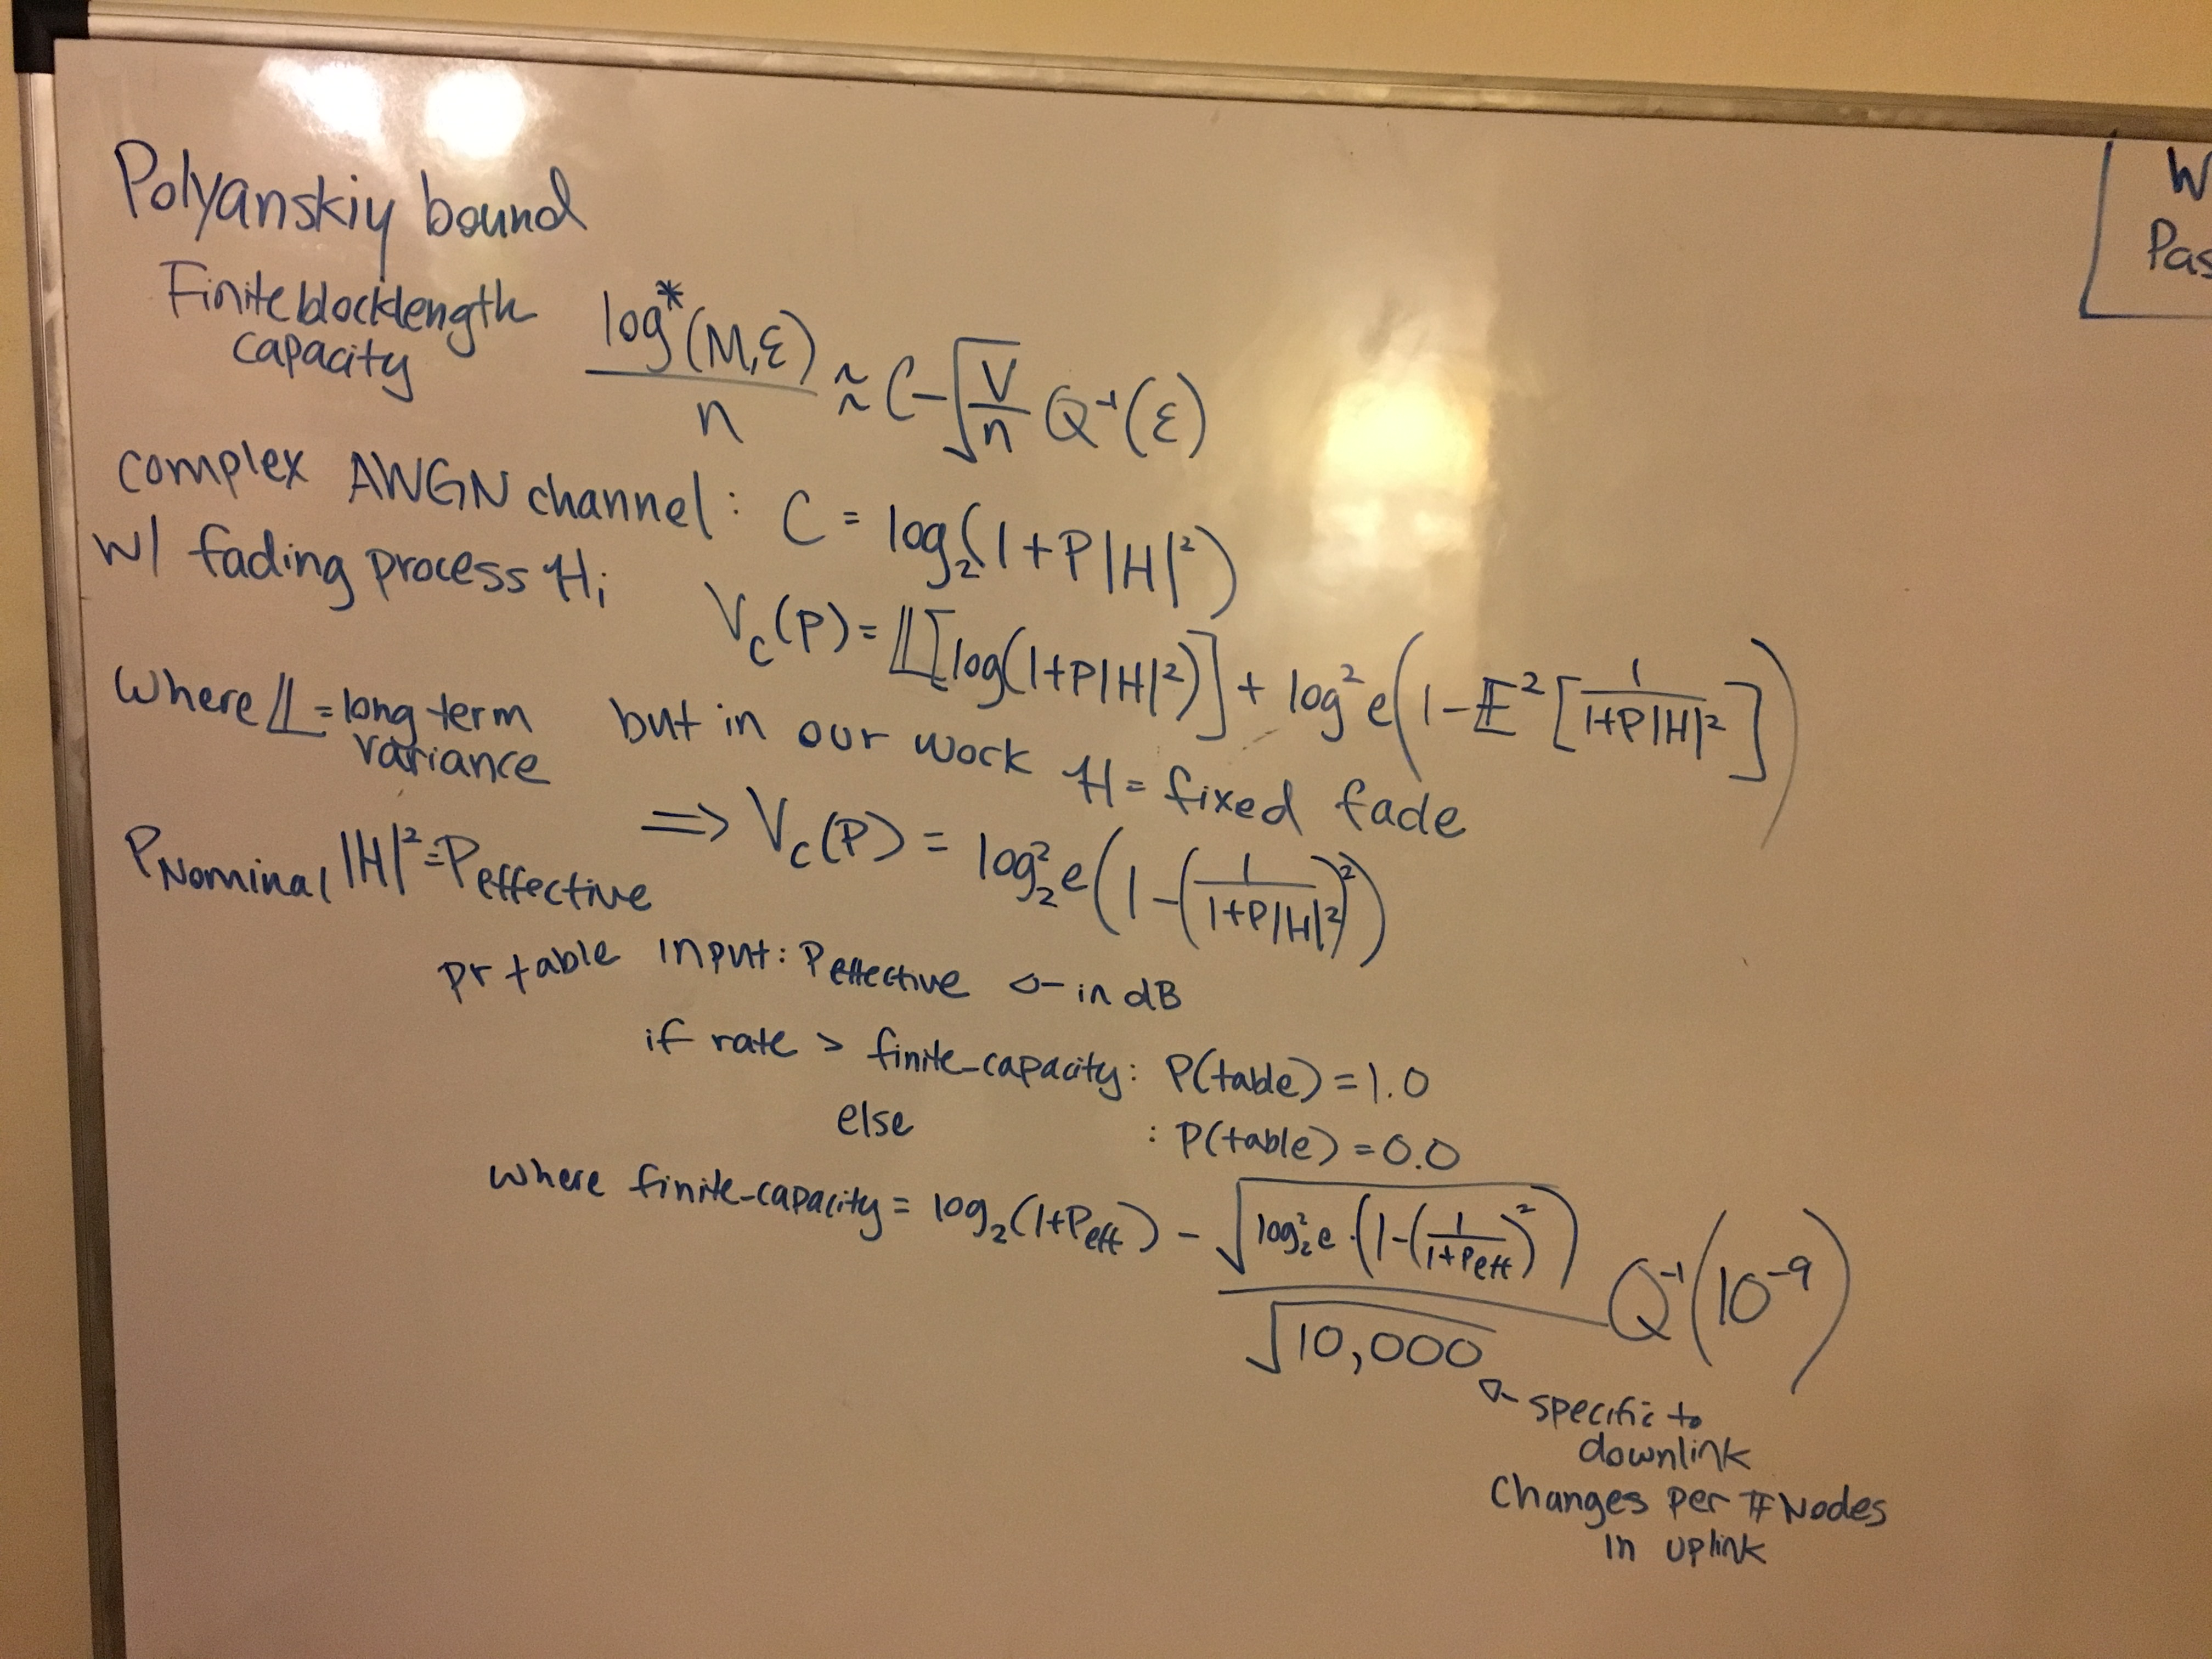 Polyanskiy bound
Finite blocklength
capacity
log*(M,ε)/n ≈ C − √(V/n) Q⁻¹(ε)
complex AWGN channel: C = log₂(1+P|H|²)
w/ fading process Hᵢ
V_c(P) = 𝕃[log(1+P|H|²)] + log²e(1−𝔼²[1/(1+P|H|²)])
where 𝕃 = long term
variance
but in our work H = fixed fade
⟹ V_c(P) = log₂²e(1−(1/(1+P|H|²))²)
P_Nominal |H|² = P_effective
pr table input: P_effective ← in dB
if rate > finite_capacity: P(table) = 1.0
else : P(table) = 0.0
where finite-capacity = log₂(1+P_eff) − √(log₂²e·(1−(1/(1+P_eff))²))/√10,000 Q⁻¹(10⁻⁹)
← specific to
downlink
changes per # Nodes
in uplink
W
Pas